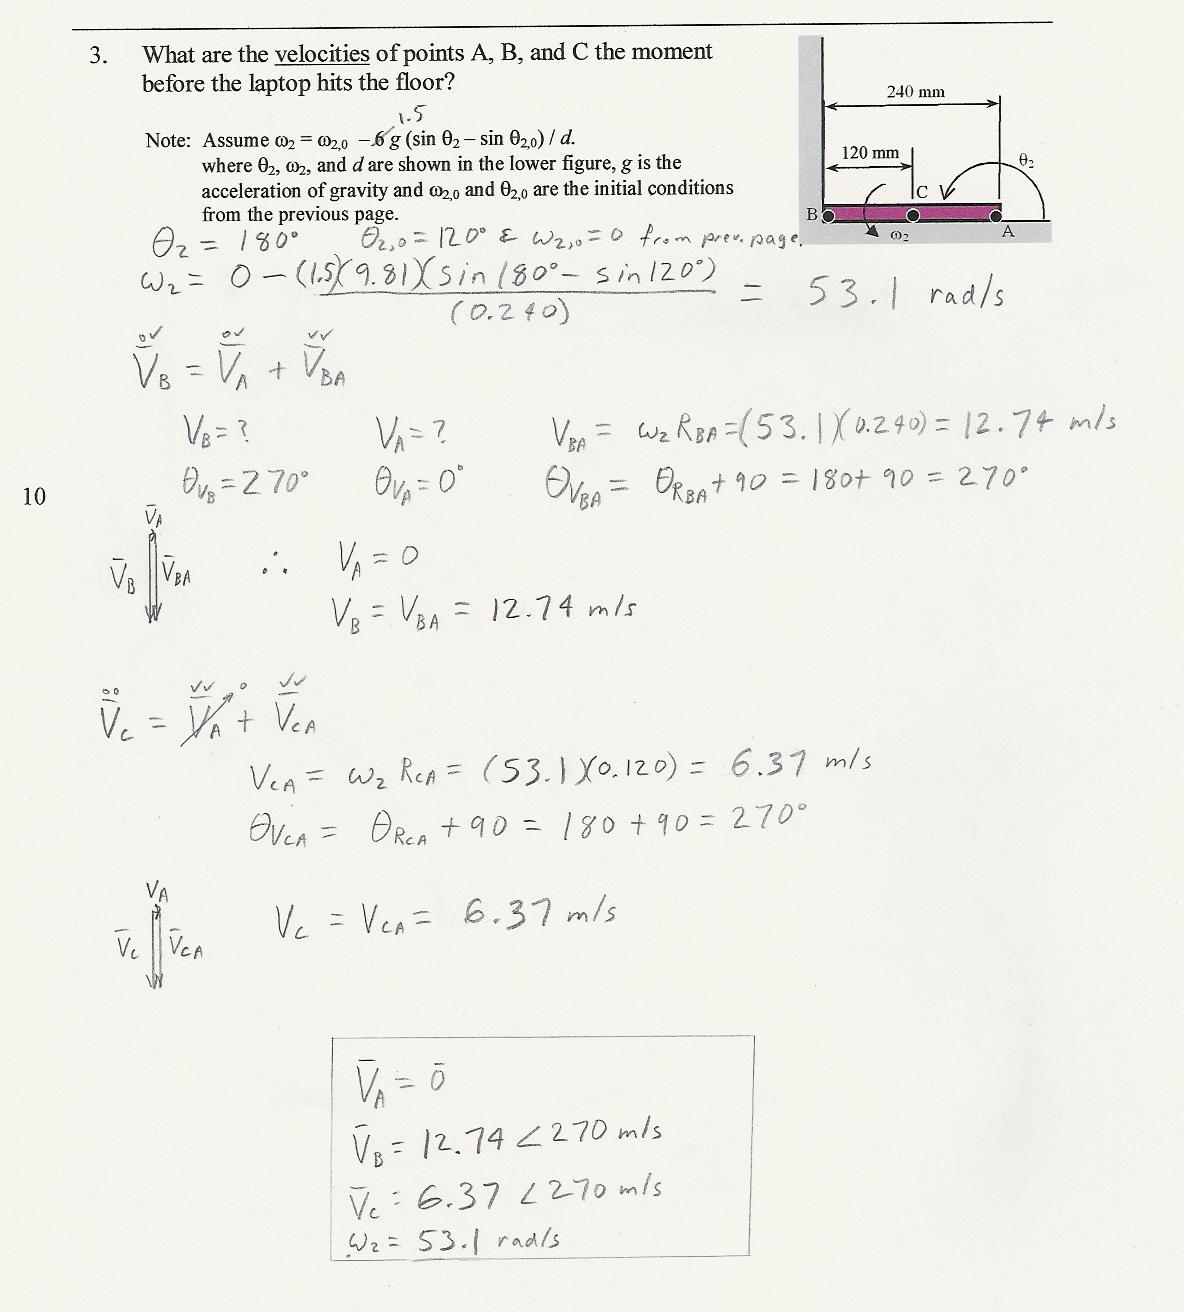 3. What are the velocities of points A, B, and C the moment
before the laptop hits the floor?
1.5
Note: Assume ω2 = ω2,0 – 6 g (sin θ2 – sin θ2,0) / d.
where θ2, ω2, and d are shown in the lower figure, g is the
acceleration of gravity and ω2,0 and θ2,0 are the initial conditions
from the previous page.
240 mm
120 mm
θ2
C
B
ω2
A
θ2 = 180° θ2,0 = 120° & ω2,0 = 0 from prev. page.
ω2 = 0 – (1.5)(9.81)(sin 180° – sin 120°) / (0.240) = 53.1 rad/s
0✓ 0✓ ✓✓
V̄B = V̄A + V̄BA
VB = ? VA = ? VBA = ω2 RBA = (53.1)(0.240) = 12.74 m/s
θVB = 270° θVA = 0° θVBA = θRBA + 90 = 180 + 90 = 270°
10
V̄A
V̄B V̄BA
∴ VA = 0
VB = VBA = 12.74 m/s
00 ✓✓ 0 ✓✓
V̄C = V̄A + V̄CA
VCA = ω2 RCA = (53.1)(0.120) = 6.37 m/s
θVCA = θRCA + 90 = 180 + 90 = 270°
VA
V̄C V̄CA
VC = VCA = 6.37 m/s
V̄A = 0̄
V̄B = 12.74 ∠270 m/s
V̄C = 6.37 ∠270 m/s
ω2 = 53.1 rad/s